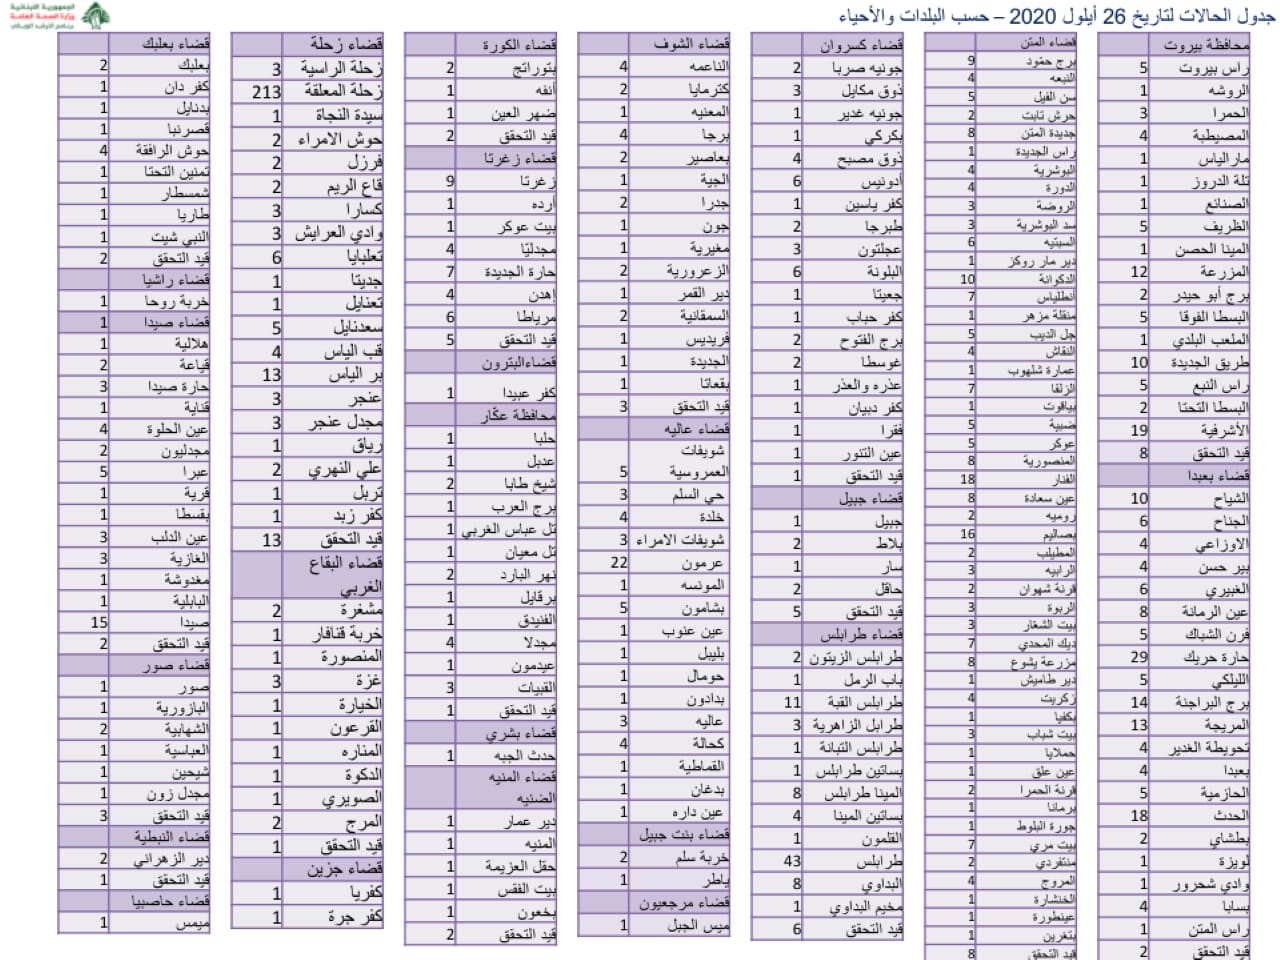 الجمهورية اللبنانية
وزارة الصحة العامة
برنامج الترصد الوبائي
جدول الحالات لتاريخ 26 أيلول 2020 – حسب البلدات والأحياء
محافظة بيروت
راس بيروت 5
الروشه 1
الحمرا 3
المصيطبة 4
مار الياس 1
تلة الدروز 1
الصنائع 1
الظريف 5
المينا الحصن 1
المزرعة 12
برج أبو حيدر 2
البسطا الفوقا 5
الملعب البلدي 1
طريق الجديدة 10
راس النبع 5
البسطا التحتا 2
الأشرفية 19
قيد التحقق 8
قضاء بعبدا
الشياح 10
الجناح 6
الاوزاعي 4
بير حسن 4
الغبيري 6
عين الرمانة 8
فرن الشباك 5
حارة حريك 29
الليلكي 5
برج البراجنة 14
المريجة 13
تحويطة الغدير 4
بعبدا 4
الحازمية 5
الحدث 18
بطشاي 2
لويزة 1
وادي شحرور 1
بسابا 4
راس المتن 1
قيد التحقق 2
قضاء المتن
برج حمّود 9
النبعه 4
سن الفيل 5
حرش تابت 2
جديدة المتن 8
راس الجديدة 1
البوشرية 4
الدورة 4
الروضة 3
سد البوشرية 3
السبتيه 6
دير مار روكز 1
الدكوانة 10
أنطلياس 7
منقلة مزهر 1
جل الديب 5
النقاش 4
عمارة شلهوب 1
الزلقا 7
بياقوت 1
ضبية 5
عوكر 5
المنصورية 8
الفنار 18
عين سعادة 8
روميه 2
بصاليم 16
المطيلب 2
الرابيه 3
قرنة شهوان 2
الربوة 3
بيت الشعار 3
ديك المحدي 7
مزرعة يشوع 8
دير طاميش 1
زكريت 4
بكفيا 1
بيت شباب 3
حملايا 1
عين علق 1
قرنة الحمرا 2
برمانا 1
جورة البلوط 1
بيت مري 7
منتفردي 2
المروج 4
الخنشارة 1
عينطورة 1
بتغرين 1
قيد التحقق 8
قضاء كسروان
جونيه صربا 2
ذوق مكايل 3
جونيه غدير 1
بكركي 1
ذوق مصبح 4
أدونيس 6
كفر ياسين 1
طبرجا 2
عجلتون 3
البلونة 6
جعيتا 1
كفر حباب 1
برج الفتوح 2
غوسطا 2
عذره والعذر 1
كفر دبيان 1
فقرا 1
عين التنور 1
قيد التحقق 1
قضاء جبيل
جبيل 1
بلاط 2
سار 1
حاقل 2
قيد التحقق 5
قضاء طرابلس
طرابلس الزيتون 2
باب الرمل 1
طرابلس القبة 11
طرابل الزاهرية 3
طرابلس التبانة 1
بساتين طرابلس 1
المينا طرابلس 8
بساتين المينا 4
القلمون 1
طرابلس 43
البداوي 8
مخيم البداوي 1
قيد التحقق 6
قضاء الشوف
الناعمه 4
كترمايا 2
المعنيه 1
برجا 4
بعاصير 2
الجية 1
جدرا 2
جون 1
مغيرية 1
الزعرورية 2
دير القمر 1
السمقانية 2
فريديس 1
الجديدة 1
بقعاتا 1
قيد التحقق 3
قضاء عاليه
شويفات
العمروسية 5
حي السلم 3
خلدة 4
شويفات الامراء 3
عرمون 22
المونسه 1
بشامون 5
عين عنوب 1
بليبل 1
حومال 1
بدادون 1
عاليه 3
كحالة 4
القماطية 1
بدغان 1
عين داره 1
قضاء بنت جبيل
خربة سلم 2
ياطر 1
قضاء مرجعيون
ميس الجبل 1
قضاء الكورة
بتوراتج 2
أنفه 1
ضهر العين 1
قيد التحقق 2
قضاء زغرتا
زغرتا 9
أرده 1
بيت عوكر 1
مجدليّا 4
حارة الجديدة 7
إهدن 4
مرياطا 6
قيد التحقق 5
قضاءالبترون
كفر عبيدا 1
محافظة عكّار
حلبا 1
عدبل 1
شيخ طابا 2
برج العرب 1
تل عباس الغربي 1
تل معيان 1
نهر البارد 2
برقايل 1
الفنيدق 1
مجدلا 4
عيدمون 1
القبيات 3
قيد التحقق 1
قضاء بشري
حدث الجبه 1
قضاء المنيه
الضنيه
دير عمار 1
المنيه 1
حقل العزيمة 1
بيت الفقس 1
بخعون 1
قيد التحقق 2
قضاء زحلة
زحلة الراسية 3
زحلة المعلقة 213
سيدة النجاة 1
حوش الامراء 2
فرزل 2
قاع الريم 2
كسارا 3
وادي العرايش 3
تعلبايا 6
جديتا 1
تعنايل 1
سعدنايل 5
قب الياس 4
بر الياس 13
عنجر 3
مجدل عنجر 3
رياق 1
علي النهري 2
تربل 1
كفر زبد 1
قيد التحقق 13
قضاء البقاع
الغربي
مشغرة 2
خربة قنافار 1
المنصورة 1
غزة 3
الخيارة 1
القرعون 1
المناره 1
الدكوة 1
الصويري 1
المرج 2
قيد التحقق 1
قضاء جزين
كفريا 1
كفر جرة 1
قضاء بعلبك
بعلبك 2
كفر دان 1
بدنايل 1
قصرنبا 1
حوش الرافقة 4
تمنين التحتا 1
شمسطار 1
طاريا 1
النبي شيت 1
قيد التحقق 2
قضاء راشيا
خربة روحا 1
قضاء صيدا 1
هلالية 1
قياعة 2
حارة صيدا 3
قناية 1
عين الحلوة 4
مجدليون 2
عبرا 5
قرية 1
بقسطا 1
عين الدلب 3
الغازية 3
مغدوشة 1
البابلية 1
صيدا 15
قيد التحقق 2
قضاء صور
صور 1
البازورية 1
الشهابية 2
العباسية 1
شيحين 1
مجدل زون 1
قيد التحقق 3
قضاء النبطية
دير الزهراني 2
قيد التحقق 1
قضاء حاصبيا
ميمس 1